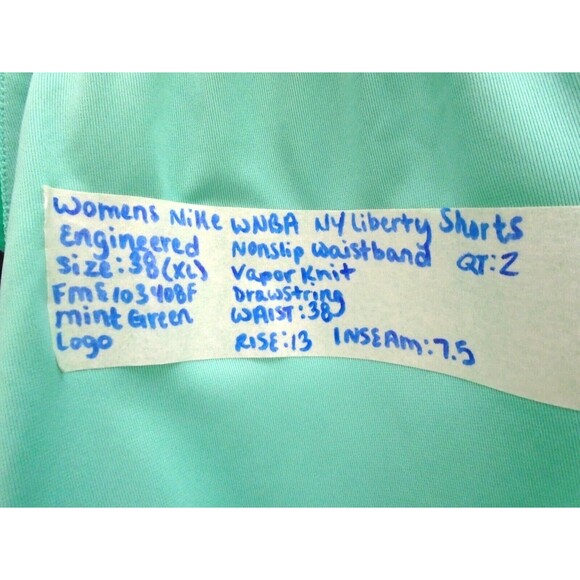 Womens Nike WNBA NY Liberty Shorts
Engineered Nonslip Waistband QT:2
Size:38(XL) Vapor Knit
FME10340BF Drawstring
Mint Green WAIST:38
Logo RISE:13 INSEAM:7.5